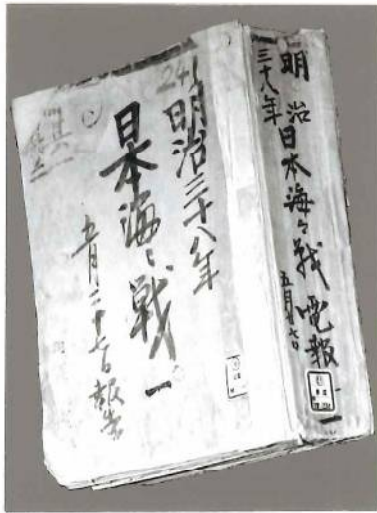 241
明治三十八年
日本海々戦 一
五月二十七日報告
明治
三十八年
日本海々戦電報 一
五月廿七日